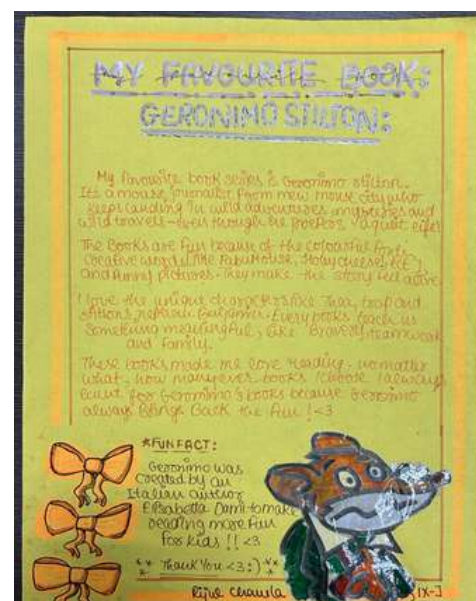 MY FAVOURITE BOOK:
GERONIMO STILTON:
My favourite book series is Geronimo stilton.
Its a mouse journalist from new mouse city who
keeps landing in wild adventures, mysteries and
wild travels - even though he prefers a quiet life!
The Books are fun because of the colourful font
creative words like FabuMouse, Holy cheese, etc
and funny pictures. They make the story feel alive.
I love the unique characters like Thea, trap and
nephew Benjamin. Every books teach us
something meaningful, like Bravery, teamwork
and family.
These books made me love reading. no matter
what, how many ever books I choose I always
for Geronimo's books because Geronimo
always Brings Back the fun ! <3
*FUNFACT:
Geronimo was
created by an
Italian author
Elisabetta Dami to make
reading more fun
for kids !! <3
** Thank You <3 :) **
Chawla IX-J